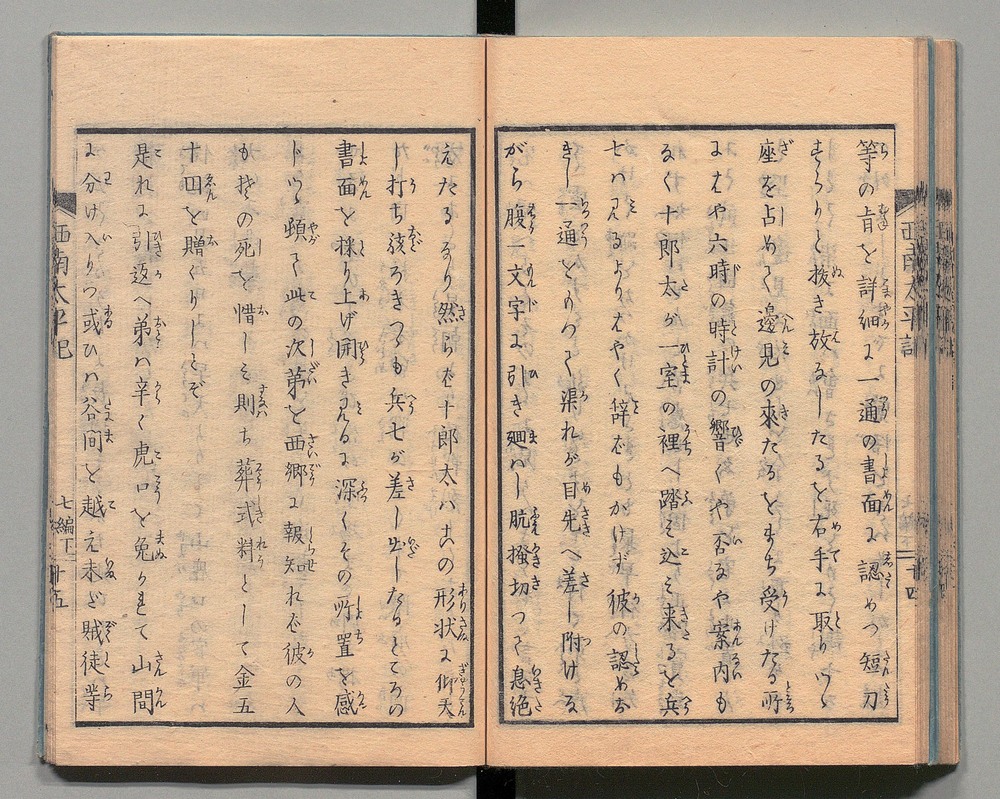 等の旨を詳細に一通の書面に認めつ短刀
すらりと抜き放なしたるを右手に取りつゝ
座を占めて邊見の來たるをまち受けたる所
にはや六時の時計の響くや否なや案内も
なく十郎太が一室の裡へ踏み込み来るを兵
七ハ見るよりもはやく辞ばもかけず彼の認めお
きし一通をとりつて渠れが目先へ差し附けな
がら腹一文字に引き廻ハし肮掻切つて息絶
えたるなり然らば十郎太ハ此の形状に仰天
し打ち驚ろきつゝも兵七が差し出したるところの
書面を採り上げ開き見るに深くその所置を感
じつゝ頓て此の次第を西郷に報知れば彼の人
もその死を惜しみ則ち葬式料として金五
十円を贈くりしとぞ
是れに引返へ弟ハ辛く虎口を免かれて山間
に分け入りつ或ひハ谷間を越え未だ賊徒等
西南太平記
七編下
十四
西南太平記
七編下
十五